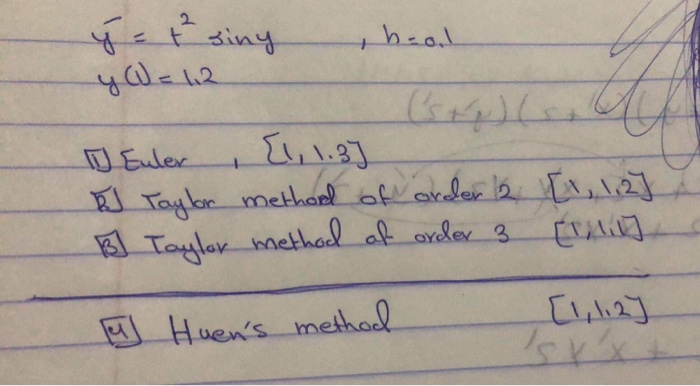 y̅ = t² siny , h=0.1
y(1) = 1.2
[1] Euler , [1, 1.3]
[2] Taylor method of order 2 [1, 1.2]
[3] Taylor method of order 3 [1, 1.1]
[4] Huen's method [1, 1.2]